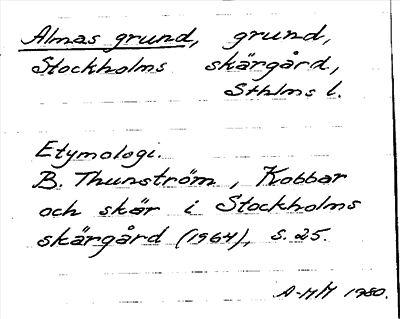 Almas grund, grund,
Stockholms skärgård,
Sthlms l.
Etymologi.
B. Thunström, Kobbar
och skär i Stockholms
skärgård (1964), s. 25.
A-MM 1980.